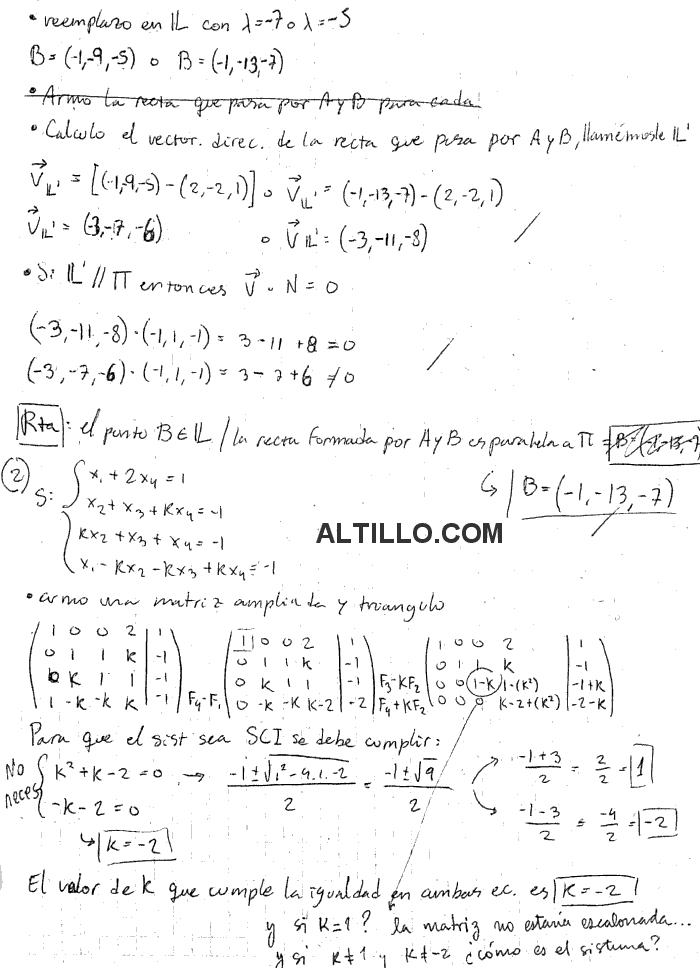 • reemplazo en IL con λ=-7 o λ=-5
B=(-1,-9,-5) o B=(-1,-13,-7)
• Armo la recta que pasa por A y B para cada
• Calculo el vector. direc. de la recta que pasa por A y B, llamémosle IL'
V⃗IL' = [(-1,-9,-5)-(2,-2,1)] o V⃗IL' = (-1,-13,-7)-(2,-2,1)
V⃗IL' = (-3,-7,-6) o V⃗IL' = (-3,-11,-8)
• Si IL' // Π entonces V⃗ · N = 0
(-3,-11,-8)·(-1,1,-1) = 3-11+8=0
(-3,-7,-6)·(-1,1,-1) = 3-7+6≠0
Rta: el punto B∈IL / la recta formada por A y B es paralela a Π = B=(-1,-13,-7)
↳ B=(-1,-13,-7)
② S: { x₁+2x₄=1
x₂+x₃+kx₄=-1
kx₂+x₃+x₄=-1
x₁-kx₂-kx₃+kx₄=-1
ALTILLO.COM
• armo una matriz ampliada y triangulo
1 0 0 2 | 1   1 0 0 2 | 1   1 0 0 2 | 1
0 1 1 k | -1   0 1 1 k | -1   0 1 1 k | -1
0 k 1 1 | -1   0 k 1 1 | -1 F₃-kF₂   0 0 1-k 1-(k²) | -1+k
1 -k -k k | -1 F₄-F₁   0 -k -k k-2 | -2 F₄+kF₂   0 0 0 k-2+(k²) | -2-k
Para que el sist sea SCI se debe cumplir:
No neces { k²+k-2=0 → (-1±√(1²-4.1.-2))/2 = (-1±√9)/2 → (-1+3)/2 = 2/2 = 1
-k-2=0 → (-1-3)/2 = -4/2 = -2
↳ k=-2
El valor de k que cumple la igualdad en ambas ec. es k=-2
y si k=1? la matriz no estaría escalonada...
y si k≠1 y k≠-2 ¿cómo es el sistema?